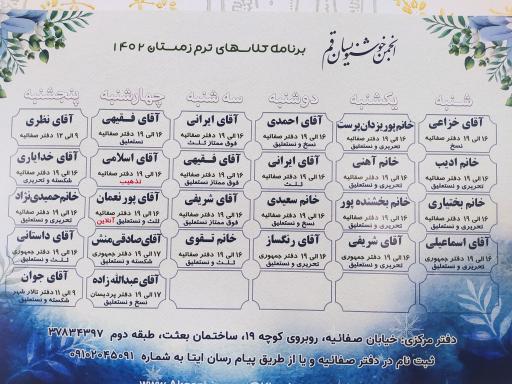 انجمن خوشنویسان قم
برنامه کلاسهای ترم زمستان ۱۴۰۲
شنبه
یکشنبه
دوشنبه
سه شنبه
چهارشنبه
پنجشنبه
آقای خزاعی
۱۶ الی ۱۹ دفتر صفائیه
نسخ
خانم پوریزدان‌پرست
۱۶ الی ۱۹ دفتر صفائیه
تحریری و نستعلیق
آقای احمدی
۱۶ الی ۱۹ دفتر صفائیه
نسخ و نستعلیق
آقای ایرانی
۱۶ الی ۱۹ دفتر صفائیه
فوق ممتاز ثلث
آقای فقیهی
۱۶ الی ۱۹ دفتر صفائیه
نستعلیق
آقای نظری
۹ الی ۱۲ دفتر صفائیه
نستعلیق
خانم ادیب
۱۶ الی ۱۹ دفتر صفائیه
تحریری و نستعلیق
خانم آهنی
۱۶ الی ۱۹ دفتر صفائیه
تحریری و نستعلیق
آقای ایرانی
۱۶ الی ۱۹ دفتر صفائیه
ثلث
آقای فقیهی
۱۶ الی ۱۹ دفتر صفائیه
فوق ممتاز نستعلیق
آقای اسلامی
۱۶ الی ۱۹ دفتر صفائیه
تذهیب
آقای خدایاری
۱۶ الی ۱۹ دفتر صفائیه
شکسته و تحریری
خانم بختیاری
۱۶ الی ۱۹ دفتر صفائیه
تحریری و نستعلیق
خانم بخشنده پور
۱۶ الی ۱۹ دفتر صفائیه
تحریری و نستعلیق
خانم سعیدی
۱۶ الی ۱۹ دفتر صفائیه
نسخ و نستعلیق
آقای شریفی
۱۶ الی ۱۹ دفتر صفائیه
نستعلیق
آقای پور نعمان
۱۶ الی ۱۹ دفتر صفائیه
ثلث و نستعلیق آنلاین
خانم حمیدی‌نژاد
۱۶ الی ۱۹ دفتر صفائیه
تحریری و نستعلیق
آقای اسماعیلی
۱۶ الی ۱۹ دفتر جمهوری
تحریری و نستعلیق
آقای شریفی
۱۶ الی ۱۹ دفتر جمهوری
تحریری و نستعلیق
آقای رنگساز
۱۶ الی ۱۹ دفتر جمهوری
تحریری و نستعلیق
خانم تقوی
۱۶ الی ۱۹ دفتر صفائیه
ثلث و نستعلیق
آقای صادقی‌منش
۱۷ الی ۱۹ دفتر جمهوری
شکسته و نستعلیق
آقای داستانی
۱۶ الی ۱۹ دفتر جمهوری
ثلث و نستعلیق
آقای عبدالله زاده
۱۷ الی ۱۹ دفتر پردیسان
نسخ و نستعلیق
آقای جوان
۹ الی ۱۱ دفتر تالار شهر
شکسته و نستعلیق
دفتر مرکزی: خیابان صفائیه، روبروی کوچه ۱۹، ساختمان بعثت، طبقه دوم ۳۷۸۳۴۳۹۷
ثبت نام در دفتر صفائیه و یا از طریق پیام رسان ایتا به شماره ۰۹۱۰۲۰۴۵۰۹۱